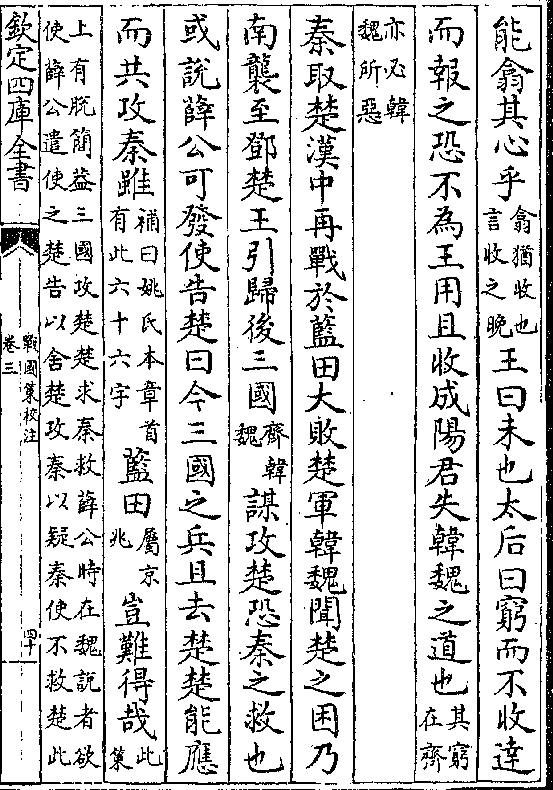 能翕其心乎翕猶收也言收之晚王曰未也太后曰窮而不收達
而報之恐不為王用且收成陽君失韓魏之道也其窮在齊
亦必韓魏所惡
秦取楚漢中再戰於藍田大敗楚軍韓魏聞楚之困乃
南襲至鄧楚王引歸後三國齊韓魏謀攻楚恐秦之救也
或說薛公可發使告楚曰今三國之兵且去楚楚能應
而共攻秦雖補曰姚氏本章首有此六十六字藍田屬京兆豈難得哉此策
上有脫簡益三國攻楚楚求秦救薛公時在魏說者欲
使薛公遣使之楚告以舍楚攻秦以疑秦使不救楚此
欽定四庫全書
戰國策校注
卷三
四十